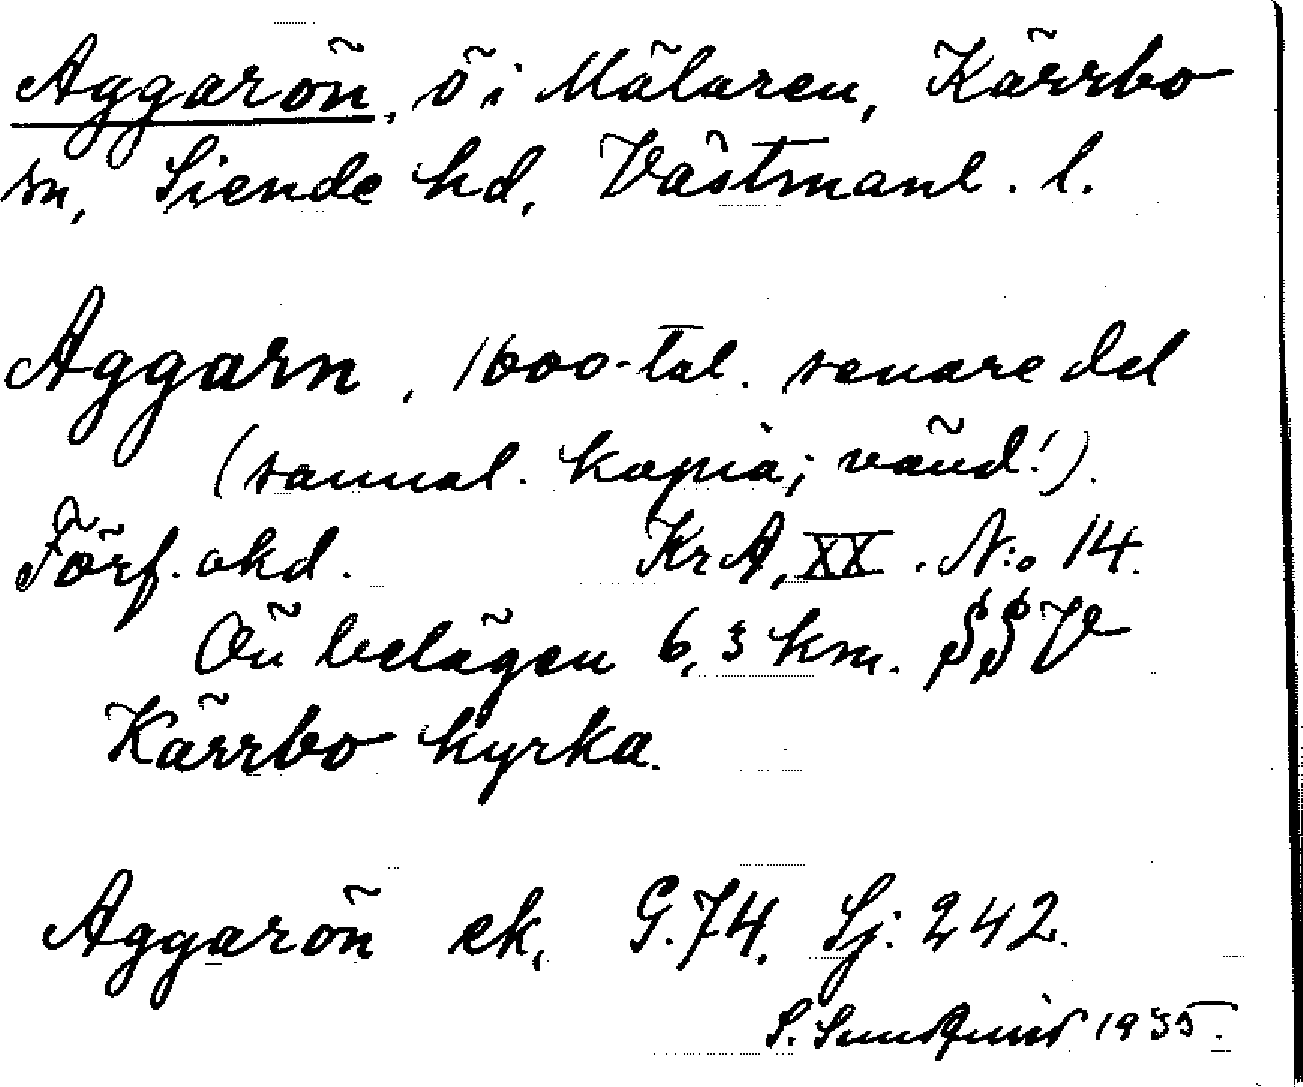 Aggarön, ö i Mälaren, Kärrbo
sn, Siende hd, Västmanl. l.
Aggarn, 1600-tal. senare del
(sannol. kopia; vänd!).
Förf. okd. KrA, XX. N:o 14.
Ön belägen 6,3 km. SSV
Kärrbo kyrka.
Aggarön ek, G.74. Sj: 242.
S. Sundquist 1935.